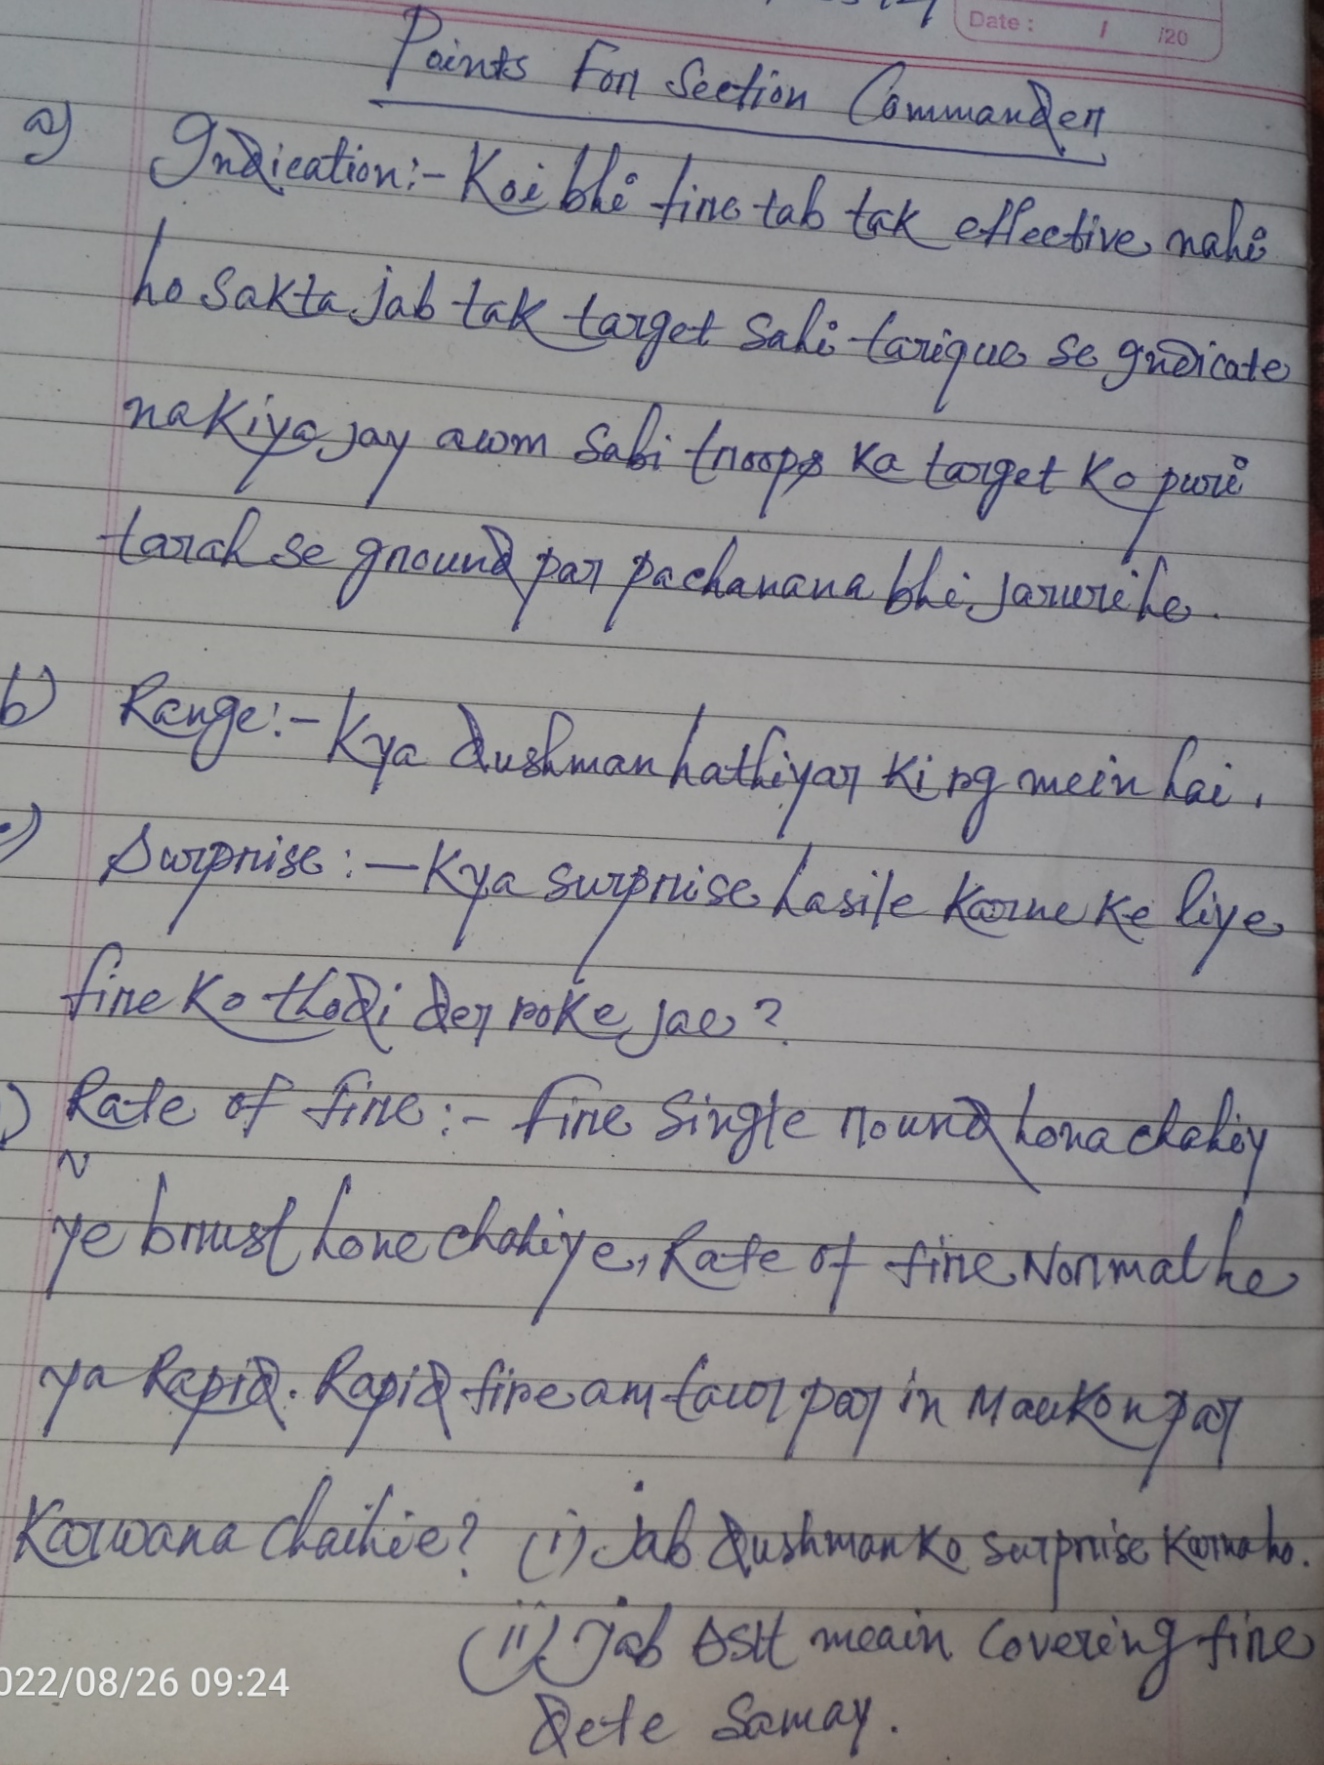 Date : / /20
Points For Section Commander
a) Indication:- Koi bhi fire tab tak effective nahi
ho sakta jab tak target Sahi tarique se Indicate
na kiya jay awm Sabi troops ka target ko puri
tarah se ground par pachanana bhi jaruri he.
b) Range:- Kya dushman hathiyar ki rg mein hai.
Surprise :- Kya surprise hasile karne ke liye
fire ko thodi der roke jae ?
) Rate of fire :- fire Single round hona chahiy
ye brust hone chahiye, Rate of fire Normal he
ya Rapid. Rapid fire am tawr par in Maukon par
Karwana chaihie? (i) Jab dushman ko surprise karna ho.
(ii) Jab ASLT meain Covering fire
dete Samay.
022/08/26 09:24